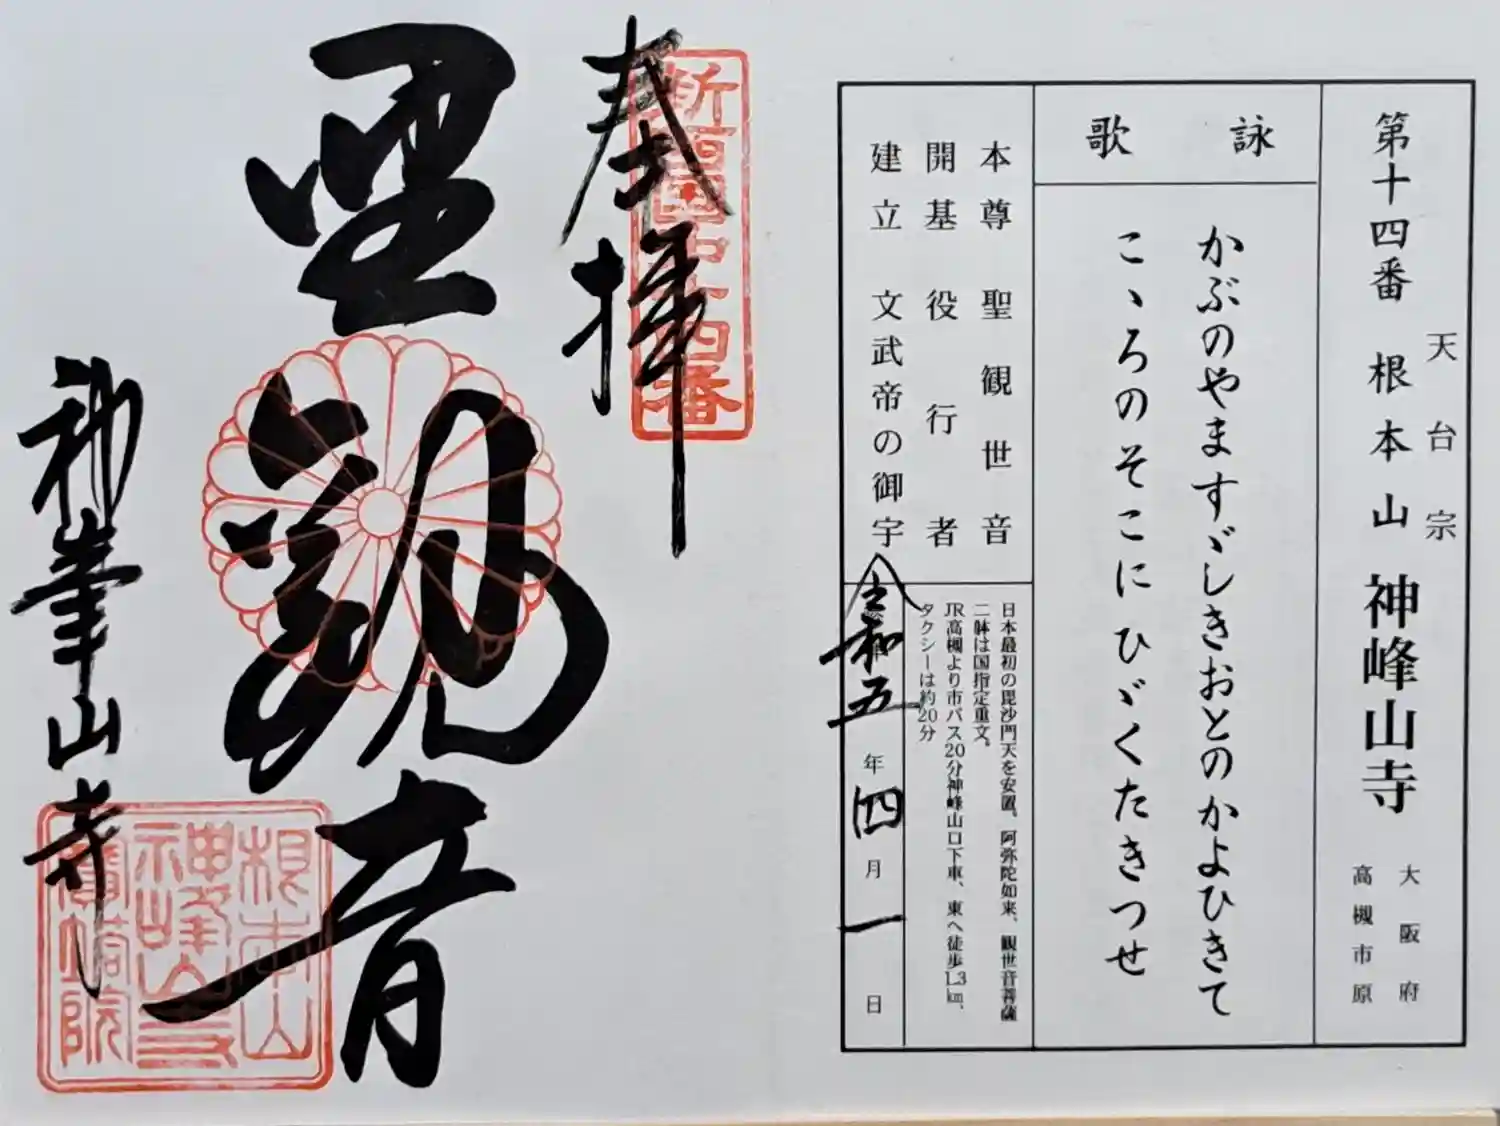 第十四番 根本山 神峰山寺
天台宗
大阪府
高槻市原
詠歌
かぶのやますゞしきおとのかよひきて
こゝろのそこにひゞくたきつせ
本尊 聖観世音
開基 役行者
建立 文武帝の御宇
日本最初の毘沙門天を安置。阿弥陀如来、観世音菩薩
二躰は国指定重文。
JR高槻より市バス20分神峰山口下車、東へ徒歩1.3㎞、
タクシーは約20分
令和五年四月一日
新西国第十四番
奉拝
聖観音
神峯山寺
根本山
神峰山寺
寶塔院